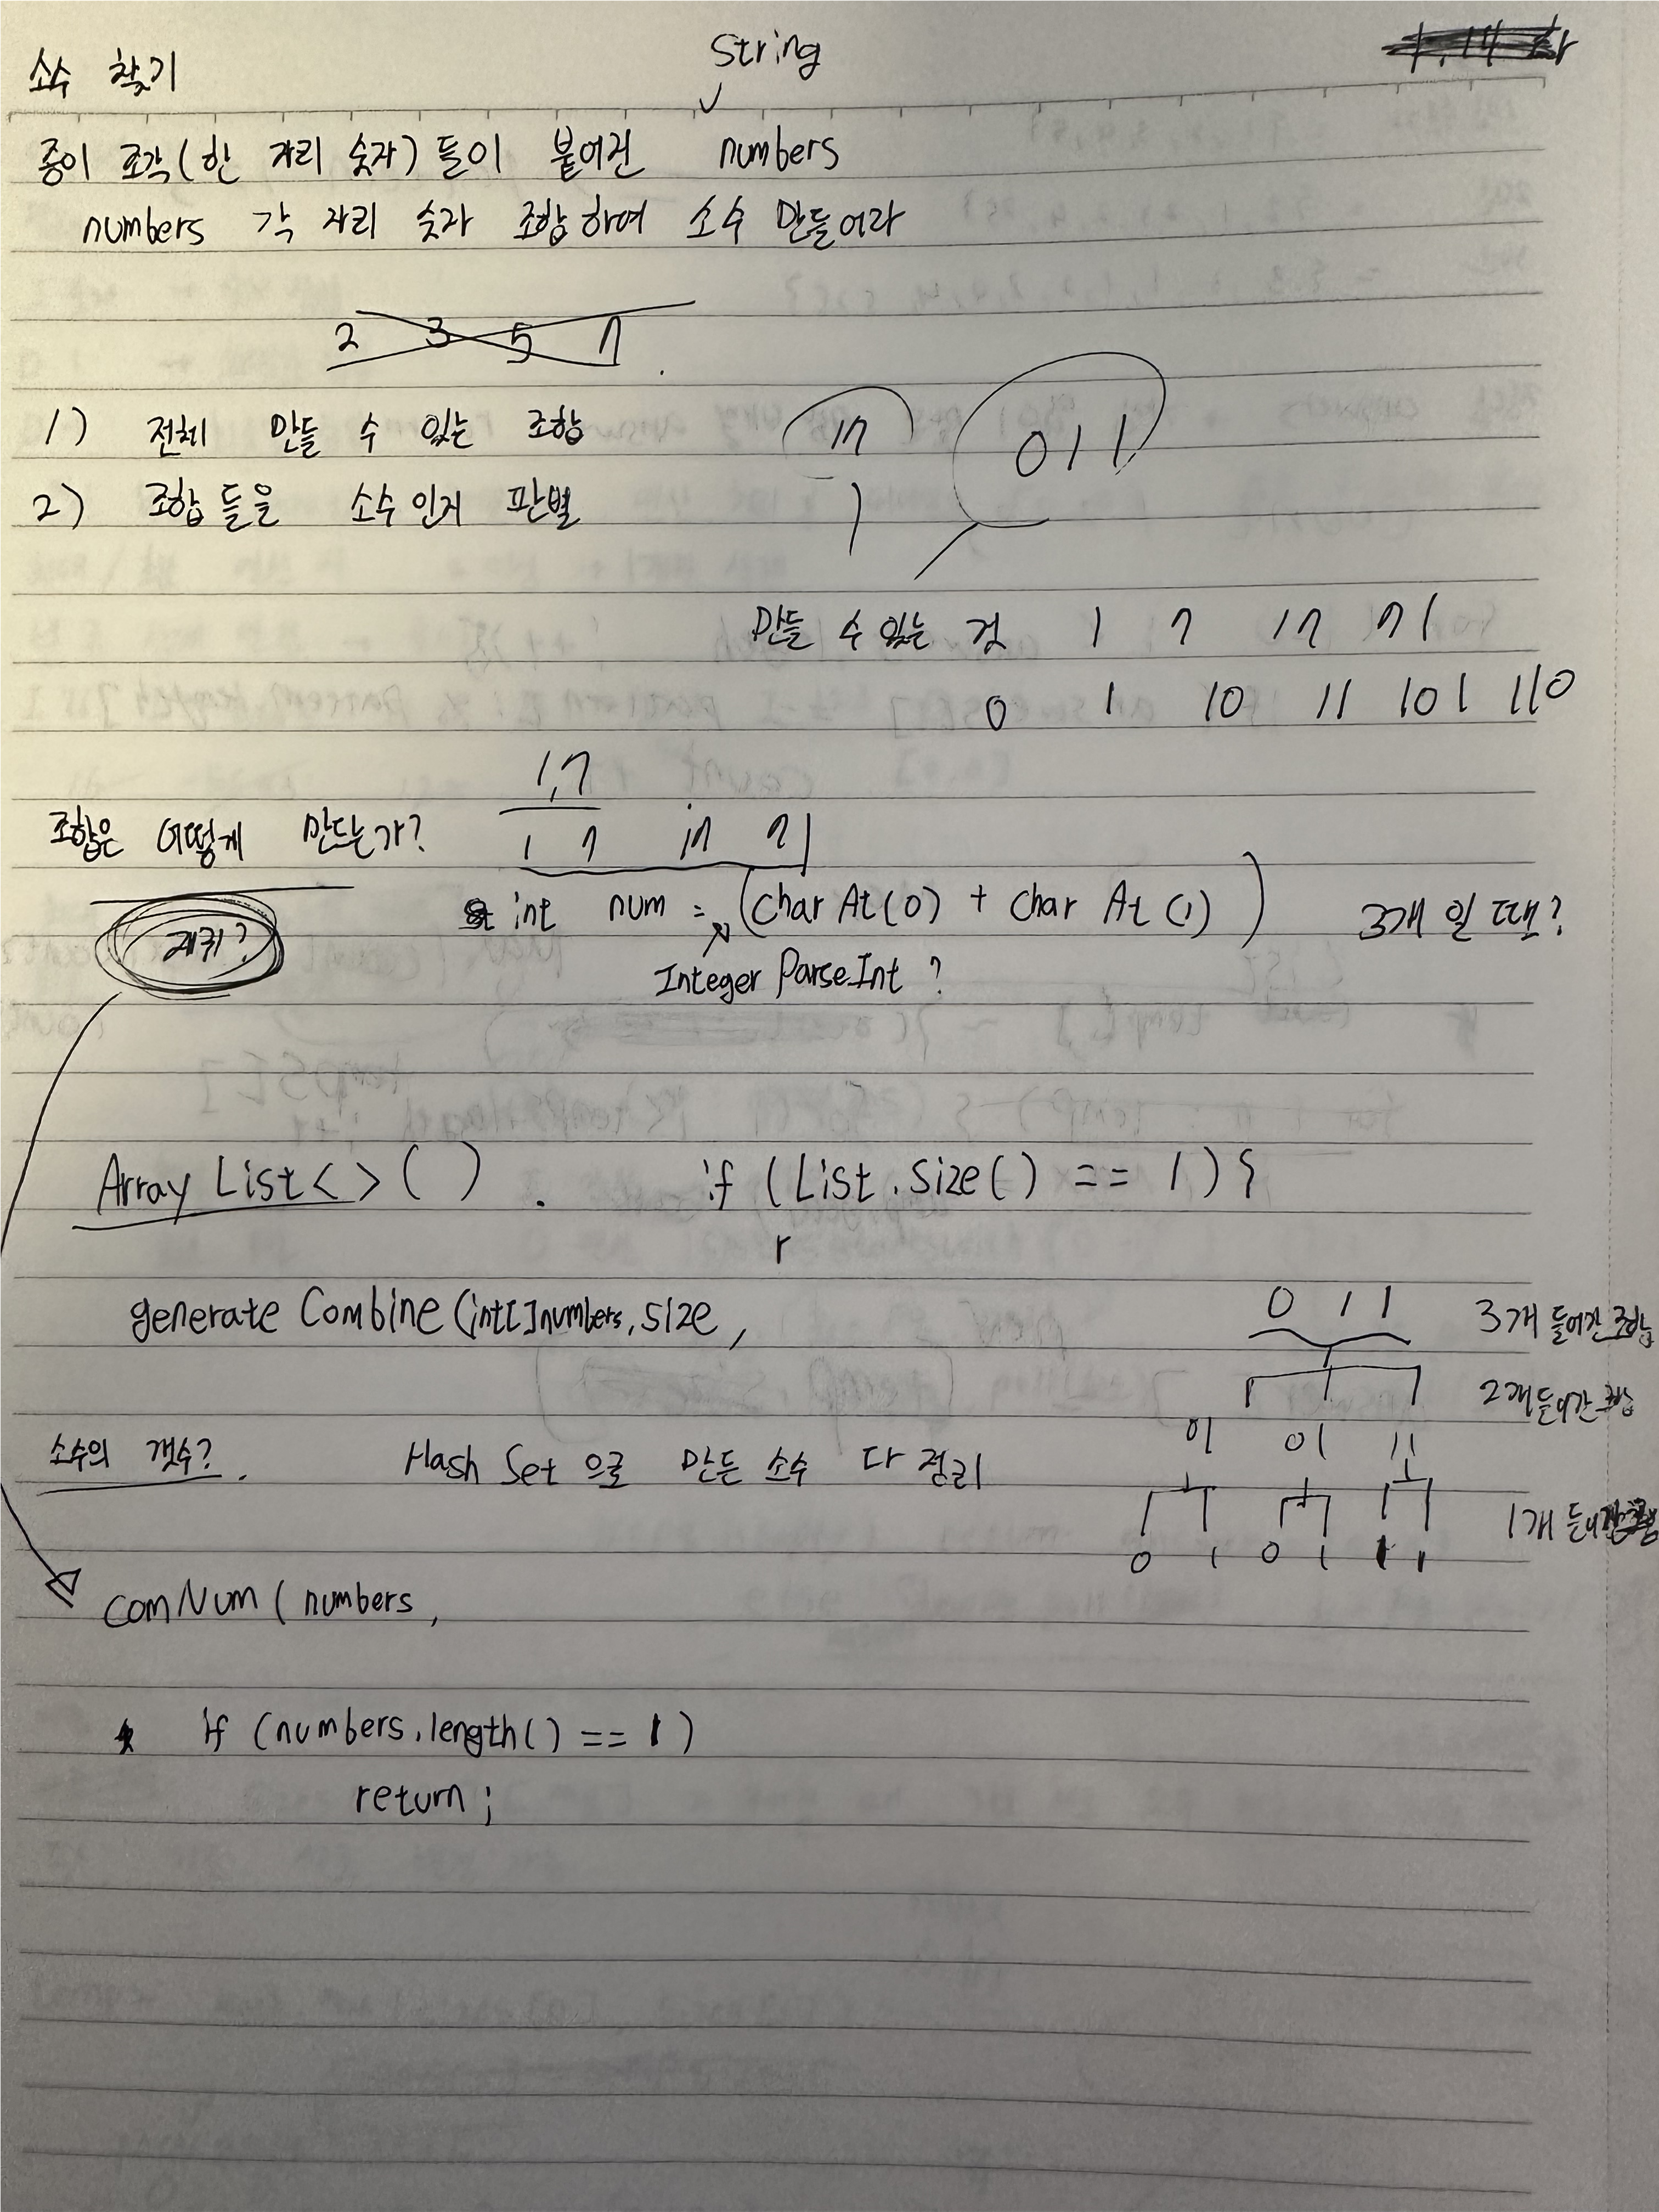 소수 찾기
String
종이 조각(한 자리 숫자)들이 붙여진 numbers
numbers 각 자리 숫자 조합하여 소수 만들어라
2 3 5 7
1) 전체 만들 수 있는 조합
17
011
2) 조합들을 소수인지 판별
만들 수 있는 것 1 7 17 71
0 1 10 11 101 110
1,7
조합은 어떻게 만드는가? 1 7 17 71
재귀?
int num = (charAt(0) + charAt(1)) 3개 일 때?
Integer Parse.Int ?
Array List<>( ) . if (List.size() == 1) {
r
generate Combine (int[]numbers, size,
0 1 1 3개 들어간 조합
2개 들어간 조합
01 01 11
소수의 갯수? Hash Set 으로 만든 소수 다 정리
1개 들어간
0 1 0 1 1 1
comNum ( numbers,
if (numbers.length() == 1)
return ;